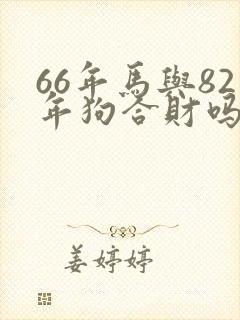 66年馬與82
年狗合財吗
姜婷婷